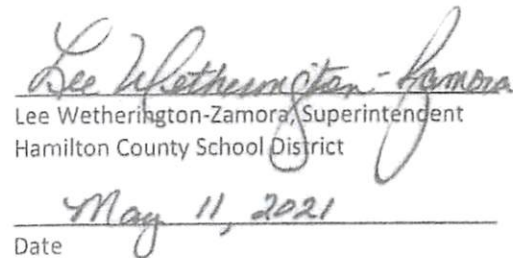 Lee Wetherington-Zamora
Lee Wetherington-Zamora, Superintendent
Hamilton County School District
May 11, 2021
Date